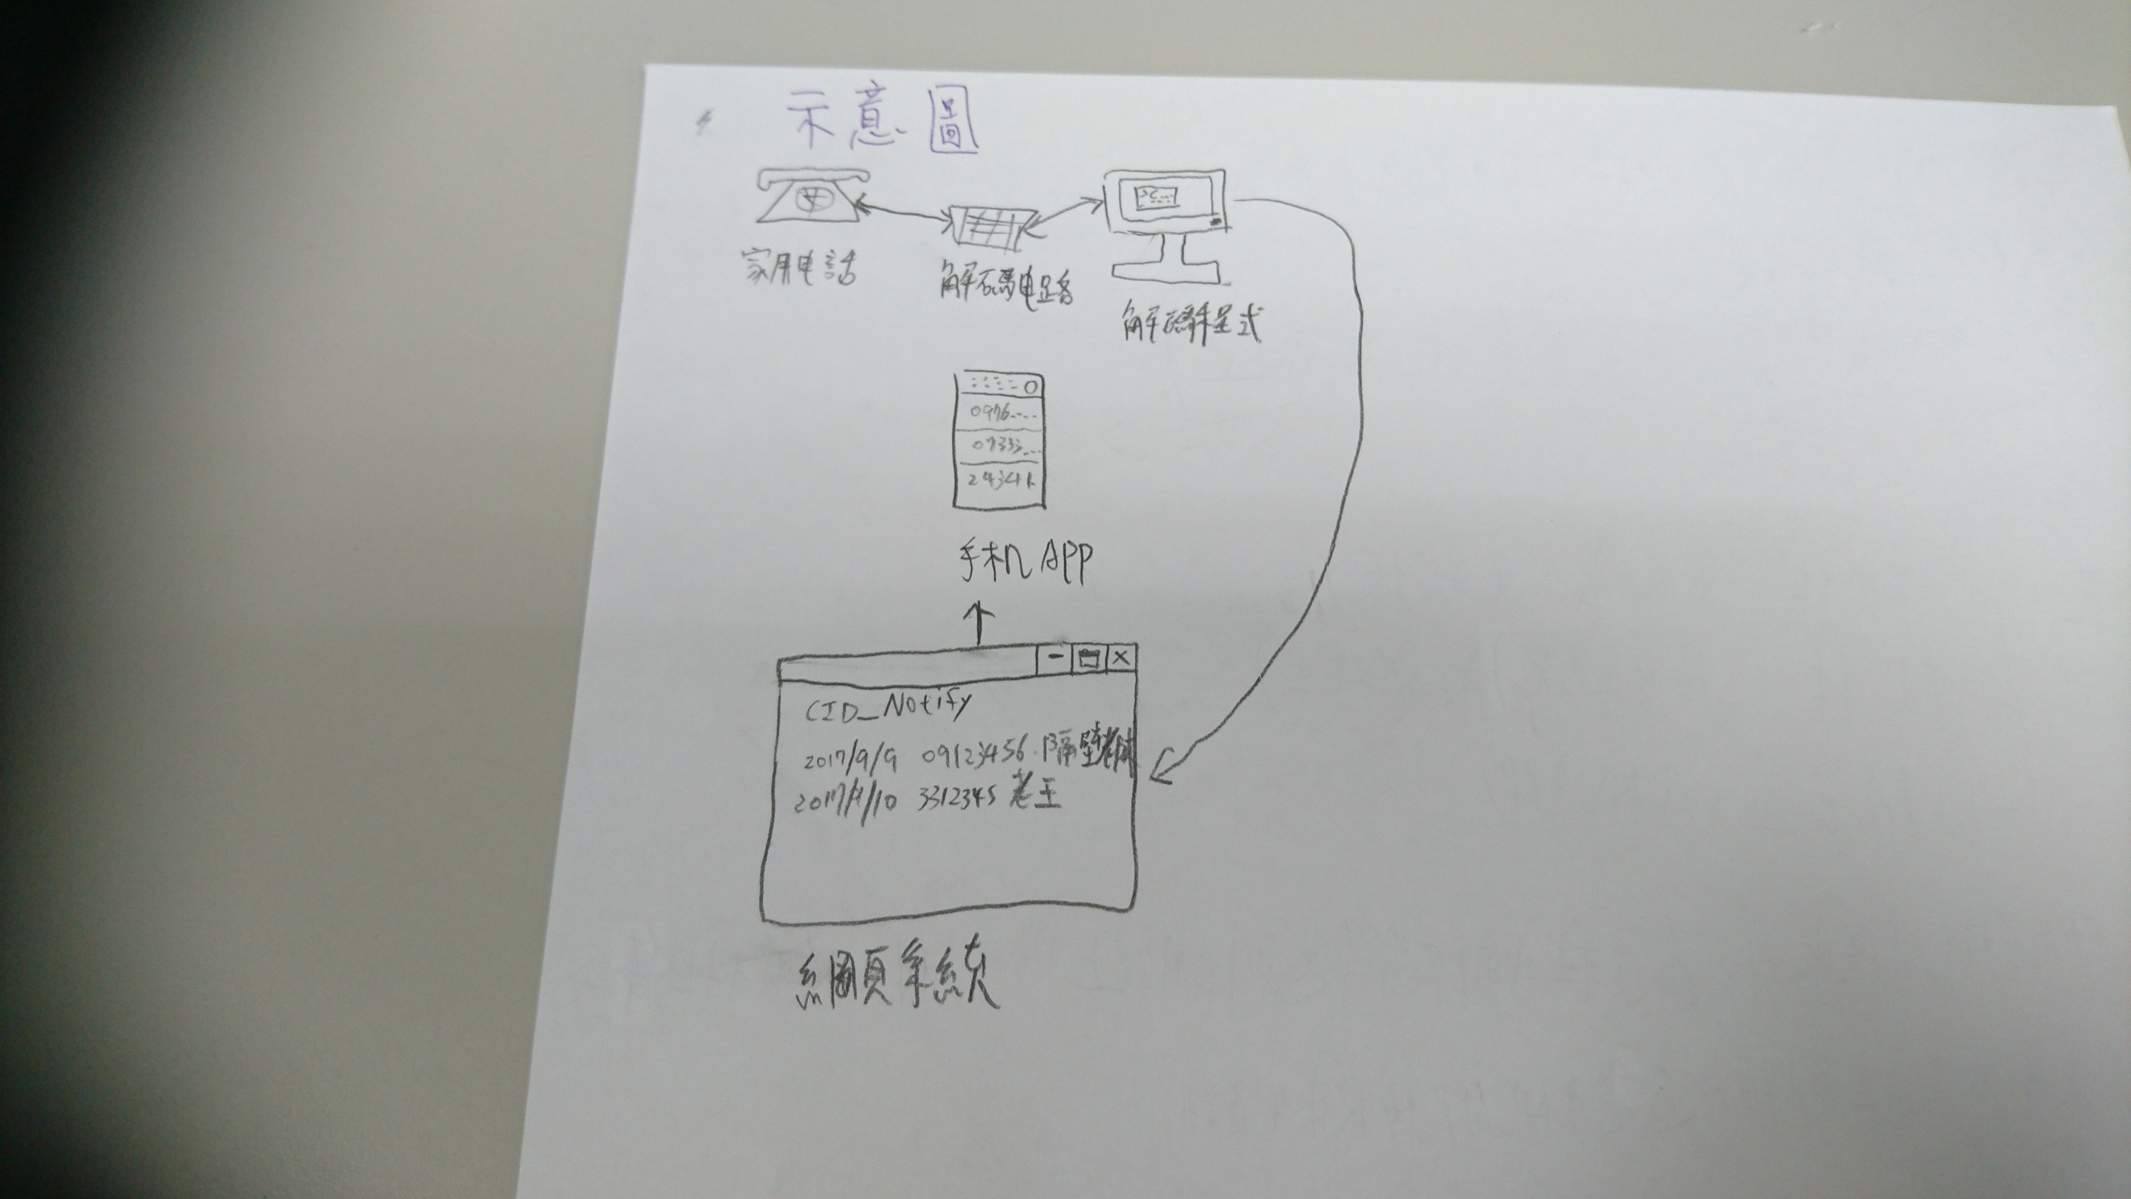 示意圖
家用电話
解碼电路
解碼程式
0976----
09333---
手机 APP
CID_Notify
2017/9/9 09123456 隔壁老
2017/9/10 3312345 老王
網頁系統